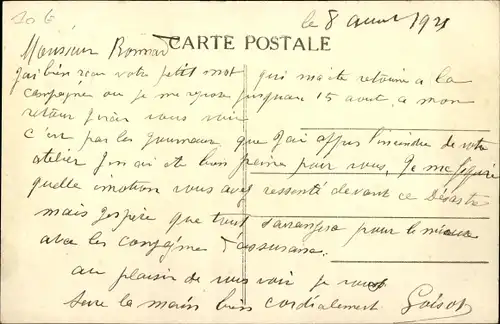 le 8 août 1921
CARTE POSTALE
Monsieur Bonnard
j'ai bien reçu votre petit mot qui m'a été retourné a la
campagne ou je me repose jusquau 15 aout, a mon
retour j'irai vous voir
c'est par les journaux que j'ai appris l'incendie de votre
atelier j'en ai été bien peiné pour vous, Je me figure
quelle émotion vous avez ressenté devant ce désastre
mais j'espère que tout s'arrangera pour le mieux
avec les compagnies d'assurance.
au plaisir de vous voir je vous
serre la main bien cordialement